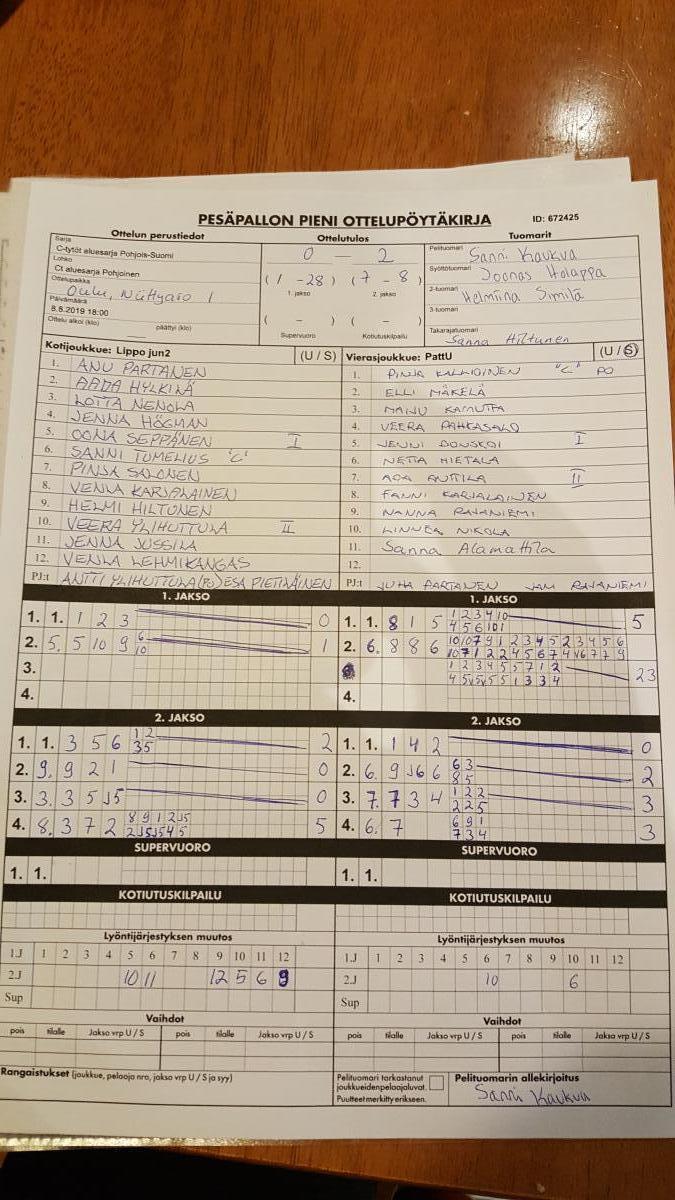 PESÄPALLON PIENI OTTELUPÖYTÄKIRJA ID: 672425
Ottelun perustiedot Ottelutulos Tuomarit
Sarja
C-tytöt aluesarja Pohjois-Suomi
Lohko
Ct aluesarja Pohjoinen
Ottelupaikka
Oulu,
Päivämäärä
8.8.2019 18:00
Ottelu alkoi (klo) päättyi (klo)
0 — 2
(1 - 28) (7 - 8)
1. jakso 2. jakso
( - ) ( - )
Supervuoro Kotiutuskilpailu
Pelituomari Sanni Kaukua
Syöttötuomari Joonas Holappa
2-tuomari Helmiina Similä
3-tuomari
Takarajatuomari Sanna Hiltunen
Kotijoukkue: Lippo jun2 (U / S)
1. ANU PARTANEN
2. AADA HYLKILÄ
3. LOTTA NENOLA
4. JENNA HÖGMAN
5. OONA SEPPÄNEN I
6. SANNI TUMELIUS "C"
7. PINJA SALONEN
8. VENLA KARJALAINEN
9. HELMI HILTUNEN
10. VEERA YLIHUTTULA II
11. JENNA JUSSILA
12. VENLA LEHMIKANGAS
PJ:t ANTTI YLIHUTTULA (PJ) ESA PIETILÄINEN
Vierasjoukkue: PattU (U / S)
1. PINJA KALLIOINEN "C" PO
2. ELLI MÄKELÄ
3. MAIJU KAMUTTA
4. VEERA PAHKASALO
5. JENNI DONSKOI I
6. NETTA HIETALA
7. ADA ANTTILA II
8. FANNI KARJALAINEN
9. NANNA RAJANIEMI
10. LINNEA NIKOLA
11. Sanna Alamattila
12.
PJ:t JUHA PARTANEN JANI RAJANIEMI
1. JAKSO
1. 1. 1 2 3 0
2. 5. 5 10 9 6 1
10
3.
4.
1. JAKSO
1. 1. 8 1 5 1 2 3 4 10 5
4 5 6 10 1
2. 6. 8 8 6 10 10 7 9 1 2 3 4 5 2 3 4 5 6
1 2 3 4 5 5 7 1 2 23
4.
2. JAKSO
1. 1. 3 5 6 1 2 2
3 5
2. 9. 9 2 1 0
3. 3. 3 5 J5 0
4. 8. 3 7 2 8 9 1 2 J5 5
2 J5 J5 4 5
2. JAKSO
1. 1. 1 4 2 0
2. 6. 9 J6 6 6 3 2
8 5
3. 7. 7 3 4 1 2 2 3
2 2 5
4. 6. 7 6 9 1 3
7 3 4
SUPERVUORO
1. 1.
SUPERVUORO
1. 1.
KOTIUTUSKILPAILU
KOTIUTUSKILPAILU
Lyöntijärjestyksen muutos
1.J 1 2 3 4 5 6 7 8 9 10 11 12
2.J 10 11 12 5 6 9
Sup
Lyöntijärjestyksen muutos
1.J 1 2 3 4 5 6 7 8 9 10 11 12
2.J 10 6
Sup
Vaihdot
pois tilalle Jakso vrp U / S pois tilalle Jakso vrp U / S
Vaihdot
pois tilalle Jakso vrp U / S pois tilalle Jakso vrp U / S
Rangaistukset (joukkue, pelaaja nro, jakso vrp U / S ja syy)
Pelituomari tarkastanut
joukkueidenpelaajaluvat.
Puutteet merkitty erikseen.
Pelituomarin allekirjoitus
Sanni Kaukua